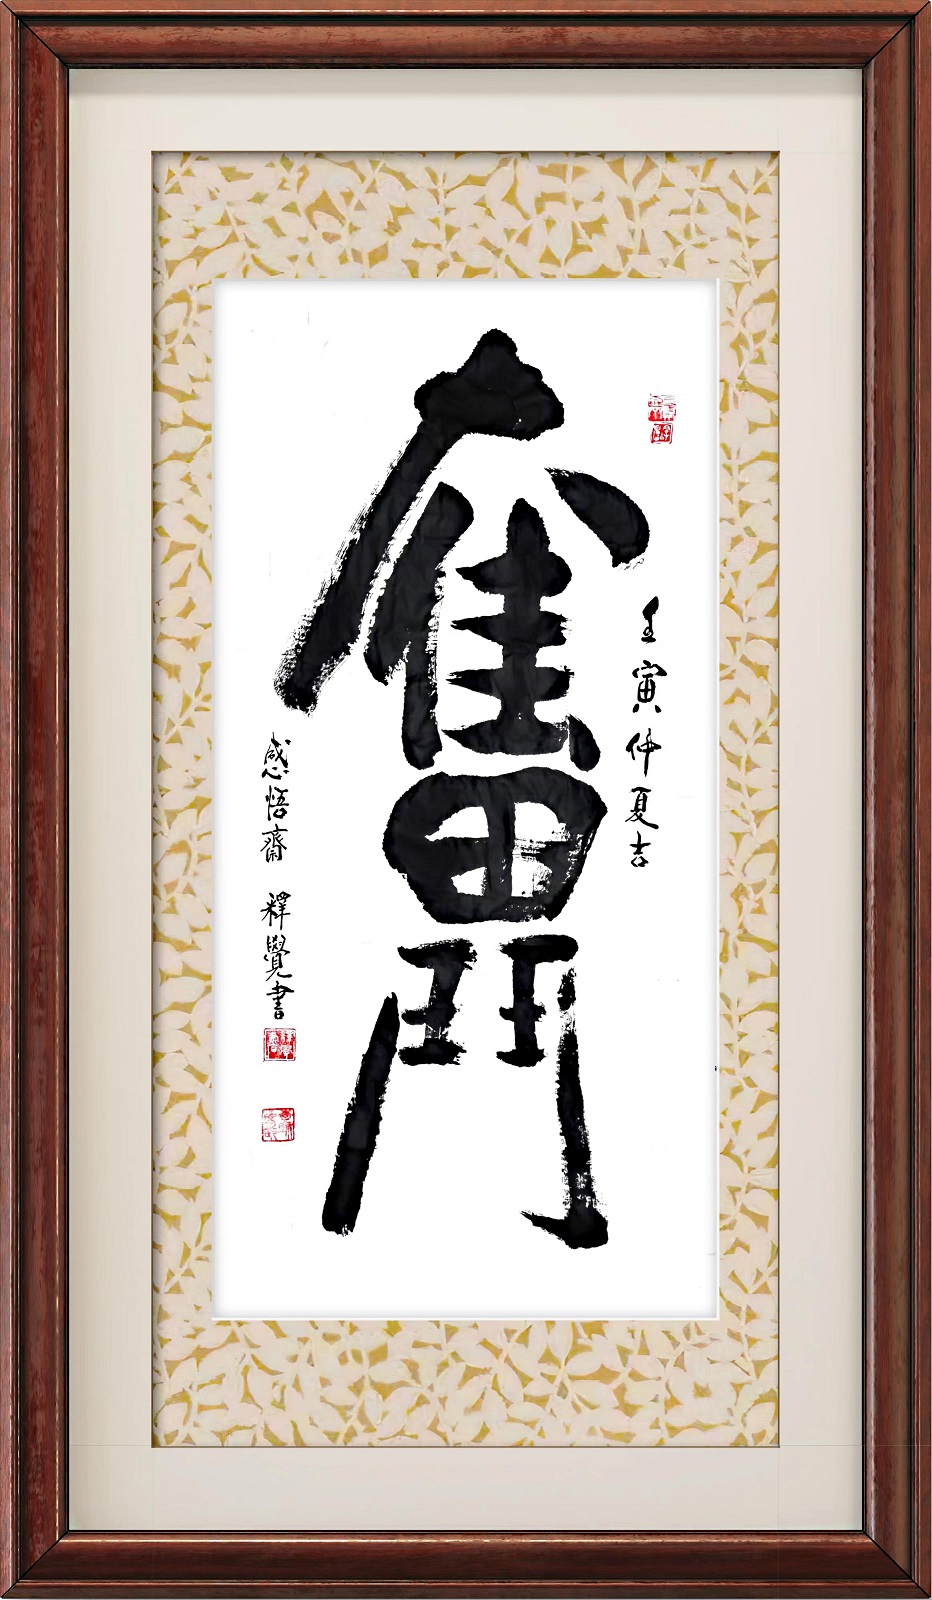 壬寅仲夏吉
奮鬥
感悟齋 釋覺書